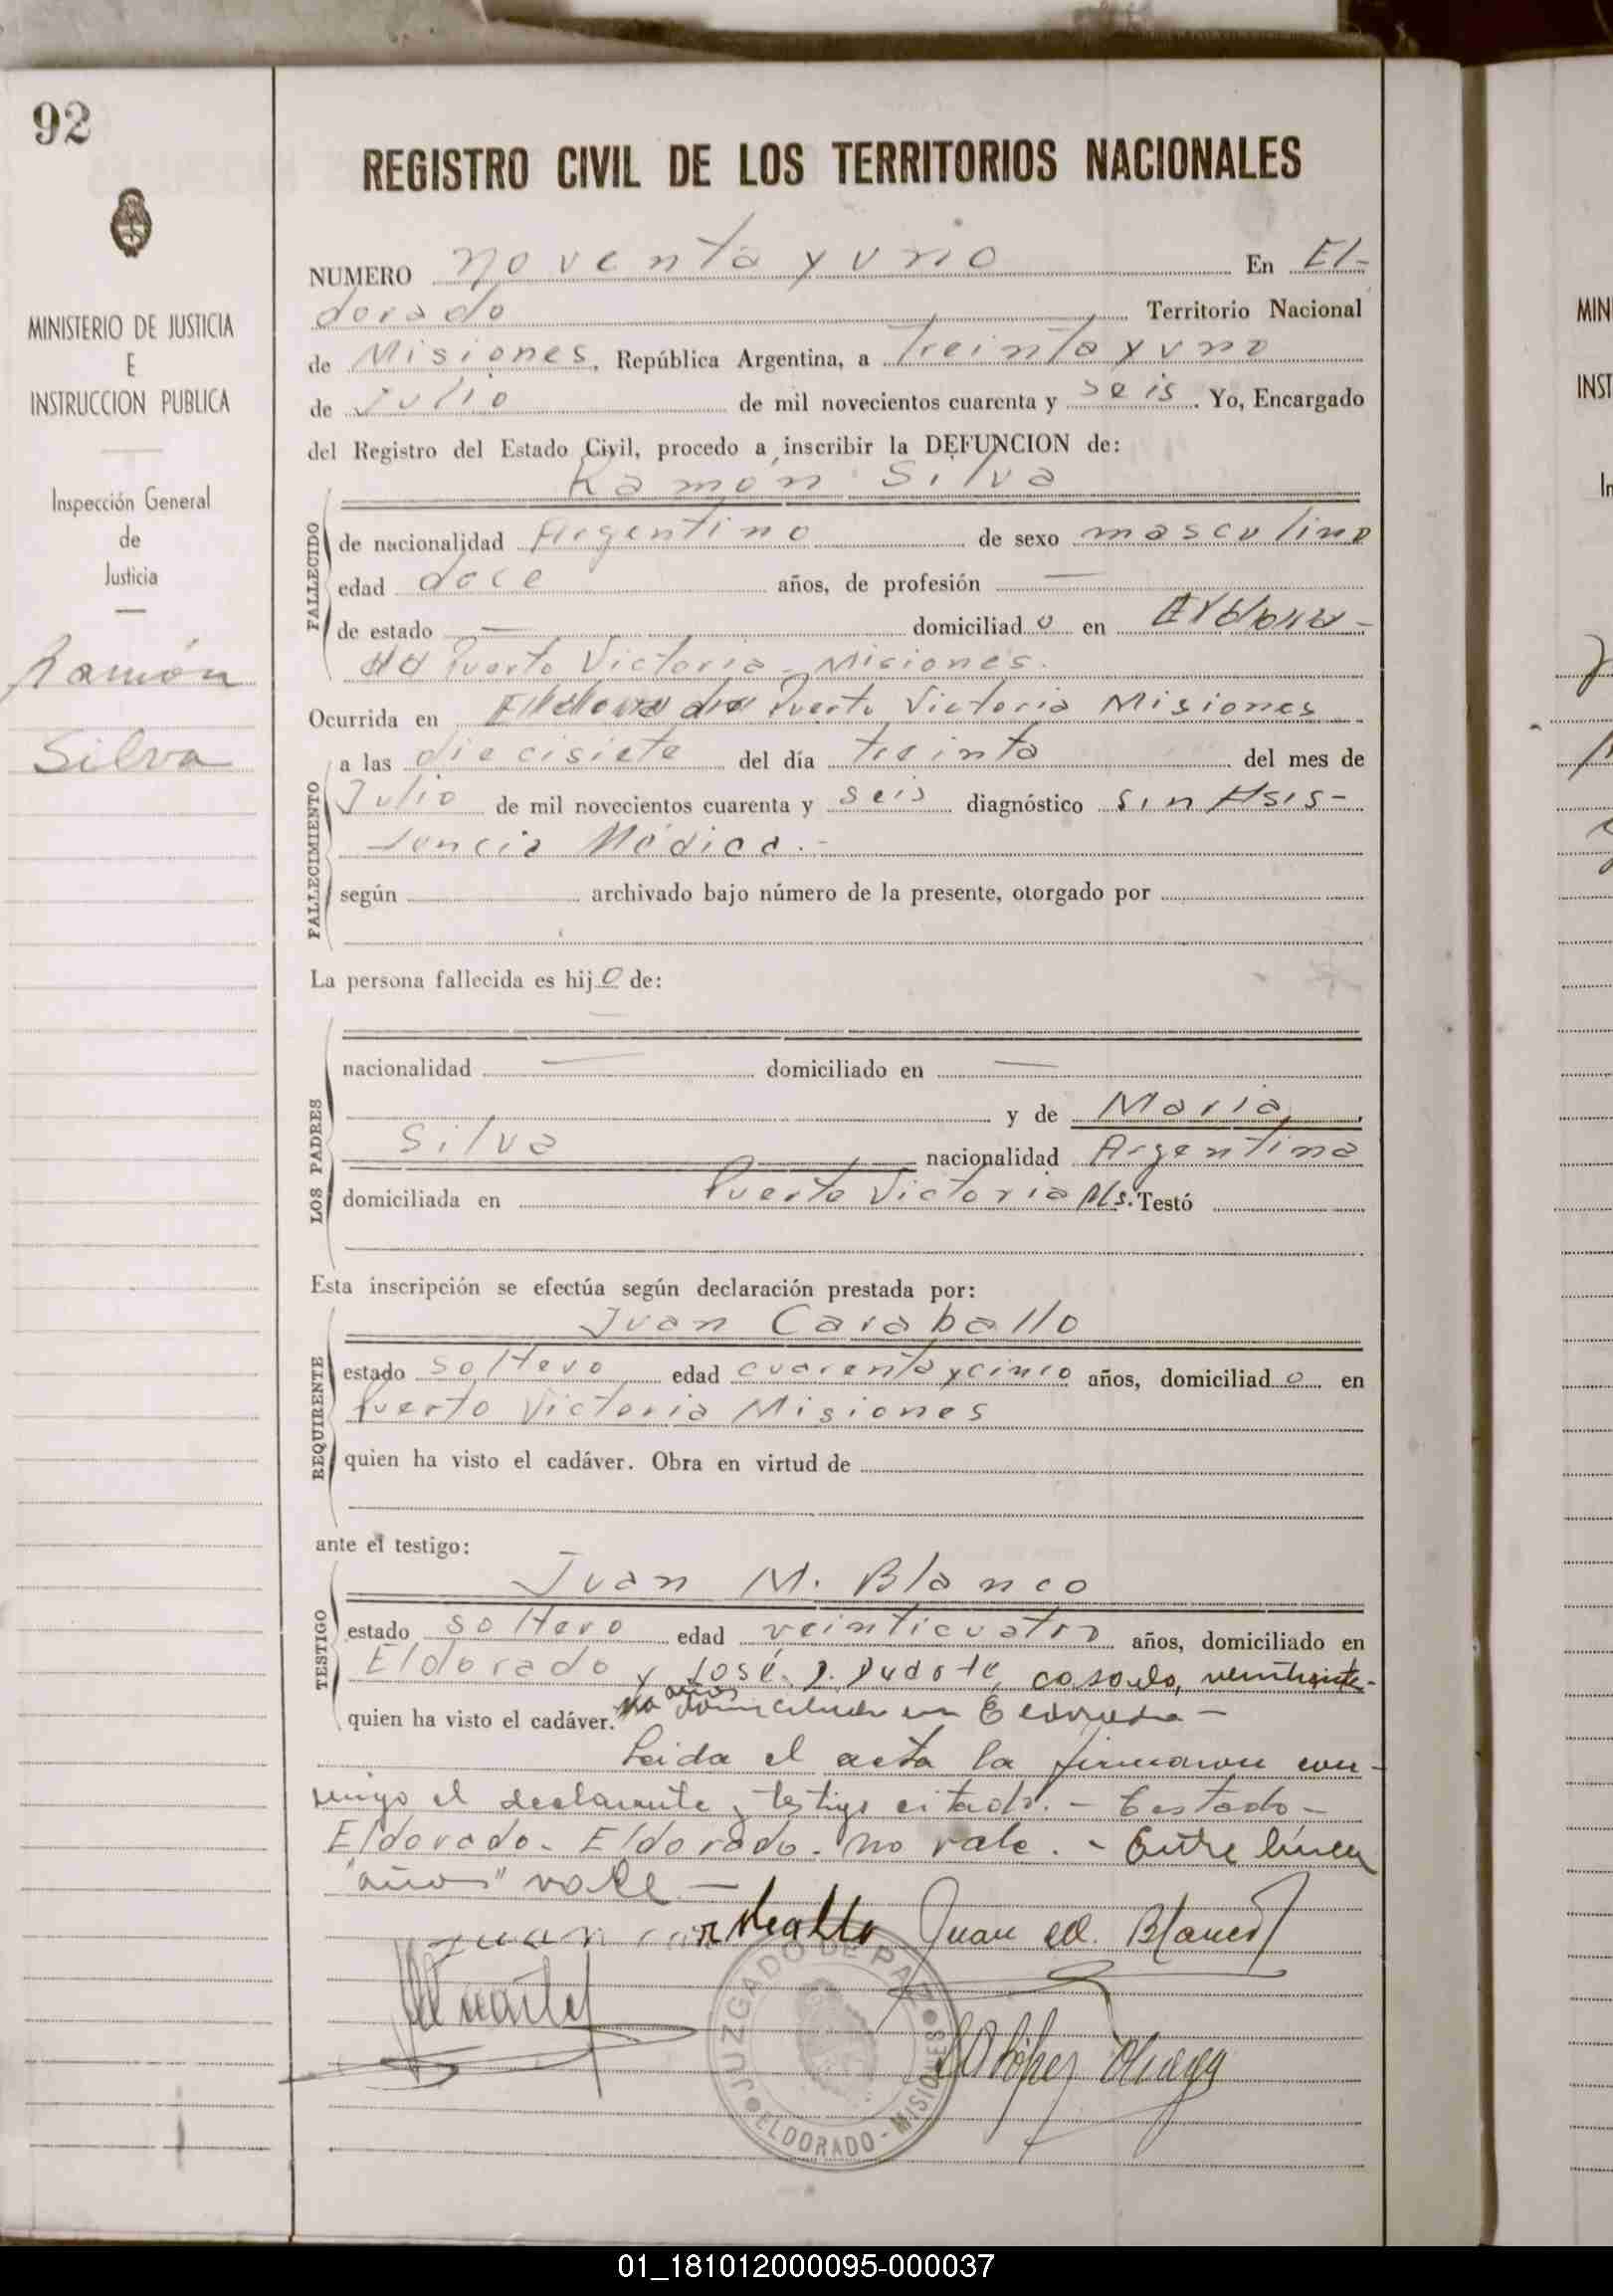 92
MINISTERIO DE JUSTICIA
E
INSTRUCCION PUBLICA
Inspección General
de
Justicia
Ramón
Silva
REGISTRO CIVIL DE LOS TERRITORIOS NACIONALES
NUMERO noventa y uno En El-
dorado Territorio Nacional
de Misiones, República Argentina, a treinta y uno
de Julio de mil novecientos cuarenta y seis. Yo, Encargado
del Registro del Estado Civil, procedo a inscribir la DEFUNCION de:
Ramón Silva
FALLECIDO
de nacionalidad Argentino de sexo masculino
edad doce años, de profesión —
de estado — domiciliado en Eldora-
do Puerto Victoria - Misiones.
Ocurrida en Eldorado Puerto Victoria Misiones
FALLECIMIENTO
a las diecisiete del día treinta del mes de
Julio de mil novecientos cuarenta y seis diagnóstico sin Asis-
tencia Médica.-
según archivado bajo número de la presente, otorgado por
La persona fallecida es hijo de:
LOS PADRES
nacionalidad — domiciliado en —
y de Maria
Silva nacionalidad Argentina
domiciliada en Puerto Victoria Mls. Testó
Esta inscripción se efectúa según declaración prestada por:
Juan Caraballo
REQUIRENTE
estado soltero edad cuarenta y cinco años, domiciliado en
Puerto Victoria Misiones
quien ha visto el cadáver. Obra en virtud de
ante el testigo:
Juan M. Blanco
TESTIGO
estado soltero edad veinticuatro años, domiciliado en
Eldorado y José. Duarte, casado,
años
quien ha visto el cadáver. domiciliado en Eldorado -
Leida el acta la firmaron con-
migo el declarante y testigo citado. - Testado -
Eldorado - Eldorado - no vale. - Entre línea
"años" vale -
Juan Juan M. Blanco
Duarte
López
JUZGADO DE PAZ
ELDORADO - MISIONES
MIN
INST
In
01_181012000095-000037